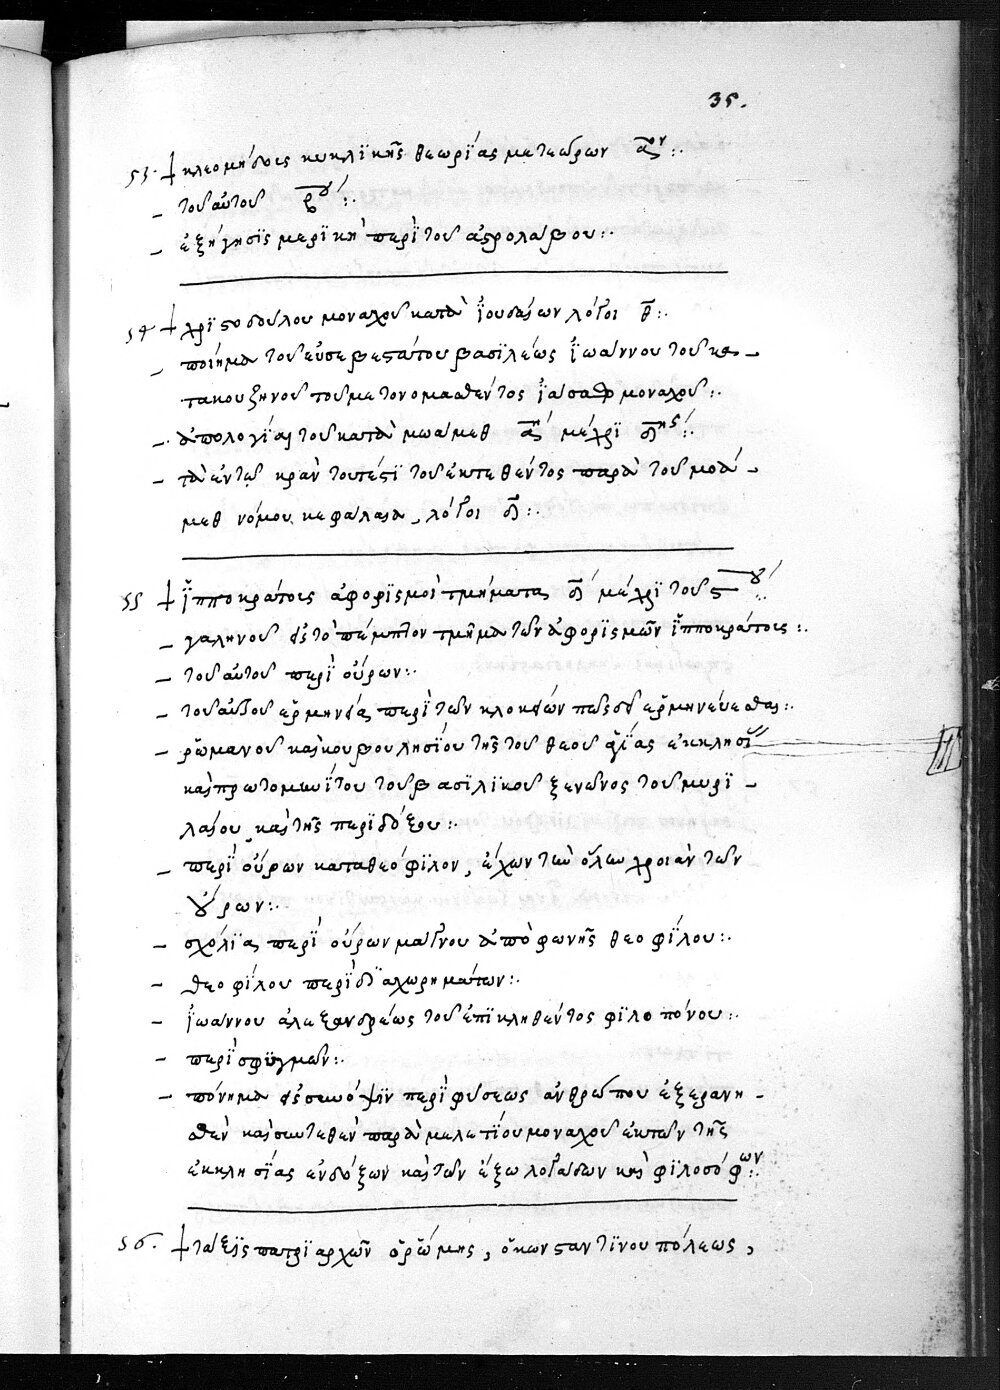 35.
53. † κλεομήδους κυκλϊκῆς θεωρΐας μετεώρων α^ον :.
– τοῦ αὐτοῦ β^ου :.
– ἐξήγησϊς μερϊκὴ περῒ τοῦ ἀστρολάβου :.
54 † χρϊστοδούλου μοναχοῦ κατὰ ϊουδαίων λόγοι θ :.
– ποίημα τοῦ εὐσεβεστάτου βασϊλέως ϊωάννου τοῦ κα –
τακουζηνοῦ τοῦ μετονομασθέντος ϊωάσαφ μοναχοῦ :.
– ἀπολογΐαι τοῦ κατὰ μωάμεθ α^η μέχρϊ δ^ης :.
– τὰ ἐν τῷ κρὰν τουτέστϊ τοῦ ἐκτεθέντος παρὰ τοῦ μοά –
μεθ νόμου κεφάλαια, λόγοι δ :.
55 † ϊπποκράτους ἀφορϊσμοὶ τμήματα δ μέχρϊ τοῦ ς^ου :.
– γαληνοῦ εἰς τὸ πέμπτον τμῆμα τῶν ἀφορϊσμῶν ϊπποκράτους :.
– τοῦ αὐτοῦ περῒ οὔρων :.
– τοῦ αὐτοῦ ἑρμηνεία περῒ τῶν πῶς δεῖ ἑρμηνεύεσθαι :.
– ῥωμανοῦ καὶ κουβουκλησΐου τῆς τοῦ θεοῦ ἁγΐας ἐκκλησΐ
καὶ πρωτομηνΐτου τοῦ βασϊλϊκοῦ ξενῶνος τοῦ μυρϊ –
λαίου καὶ τῆς περϊδόξου :.
– περῒ οὔρων κατὰ θεόφϊλον, ἔχων τὴν ὅλην χροιὰν τῶν
οὔρων :.
– σχόλϊα περῒ οὔρων μάγνου ἀπὸ φωνῆς θεοφΐλου :.
– θεοφΐλου περῒ δϊαχωρημάτων :.
– ϊωάννου ἀλεξανδρέως τοῦ ἐπϊκληθέντος φϊλοπόνου :.
– περῒ σφυγμῶν :.
– πόνημα εἰς σύνοψϊν περῒ φύσεως ἀνθρώπου ἐξερανη –
σθὲν καὶ συντεθὲν παρὰ μελετΐου μοναχοῦ ἐκ τῶν τῆς
ἐκκλησΐας ἐνδόξων καὶ τῶν ἔξω λογάδων καὶ φϊλοσόφων :.
56. † τάξεϊς πατρϊαρχῶν ὁ ῥώμης, ὁ κωνσταντϊνουπόλεως,